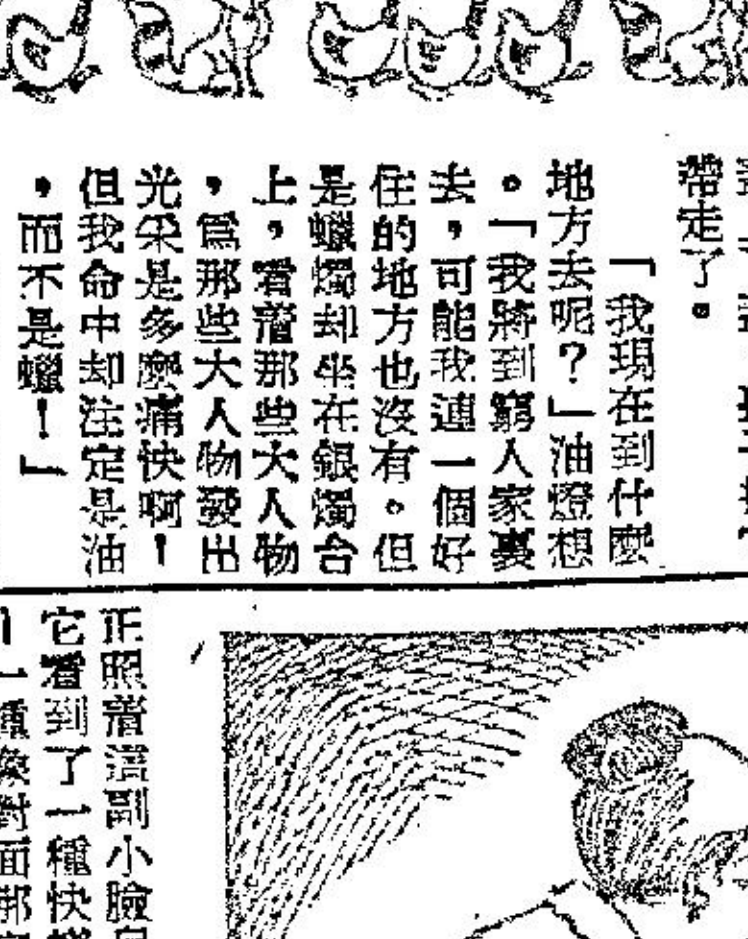 帶走了。
「我現在到什麼
地方去呢？」油燈想
。「我將到窮人家裏
去，可能我連一個好
住的地方也沒有。但
是蠟燭却坐在銀燭台
上，看着那些大人物
，爲那些大人物發出
光采是多麼痛快啊！
但我命中却注定是油
，而不是蠟！」
正照着這副小臉
它看到了一種快
一種象對面那